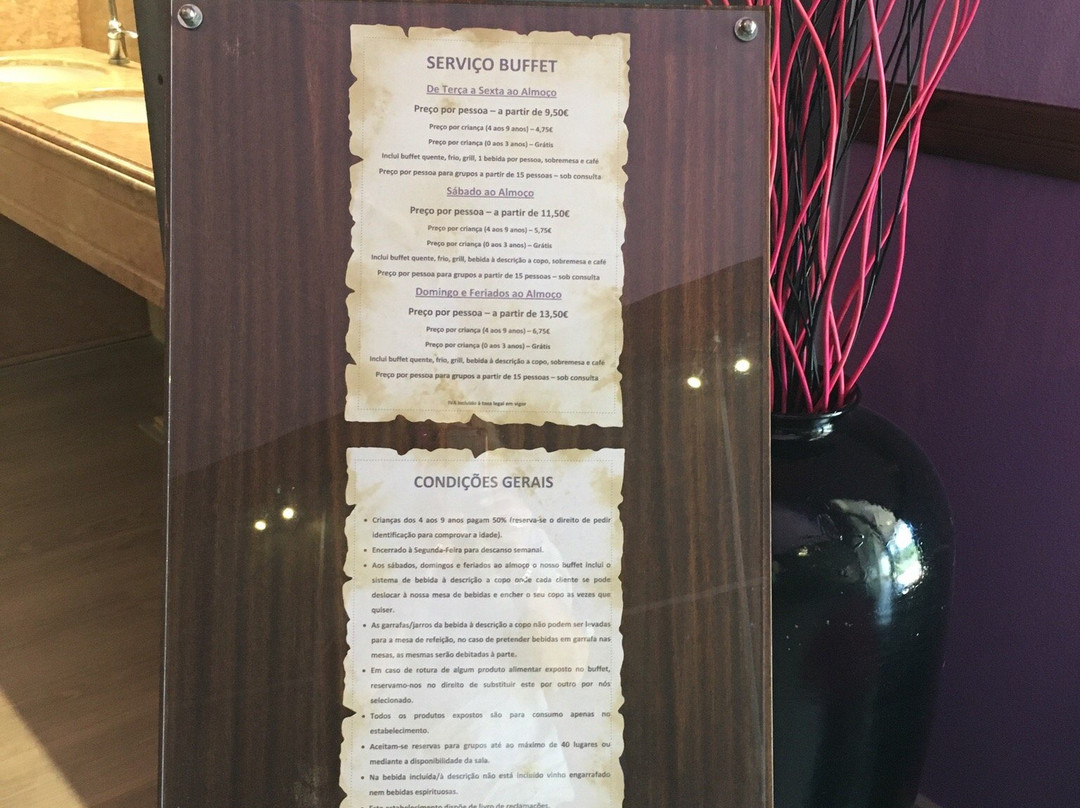 SERVIÇO BUFFET
De Terça a Sexta ao Almoço
Preço por pessoa – a partir de 9,50€
Preço por criança (4 aos 9 anos) – 4,75€
Preço por criança (0 aos 3 anos) – Grátis
Inclui buffet quente, frio, grill, 1 bebida por pessoa, sobremesa e café
Preço por pessoa para grupos a partir de 15 pessoas – sob consulta
Sábado ao Almoço
Preço por pessoa – a partir de 11,50€
Preço por criança (4 aos 9 anos) – 5,75€
Preço por criança (0 aos 3 anos) – Grátis
Inclui buffet quente, frio, grill, bebida à descrição a copo, sobremesa e café
Preço por pessoa para grupos a partir de 15 pessoas – sob consulta
Domingo e Feriados ao Almoço
Preço por pessoa – a partir de 13,50€
Preço por criança (4 aos 9 anos) – 6,75€
Preço por criança (0 aos 3 anos) – Grátis
Inclui buffet quente, frio, grill, bebida à descrição a copo, sobremesa e café
Preço por pessoa para grupos a partir de 15 pessoas – sob consulta
IVA incluído à taxa legal em vigor
CONDIÇÕES GERAIS
• Crianças dos 4 aos 9 anos pagam 50% (reserva-se o direito de pedir
identificação para comprovar a idade).
• Encerrado à Segunda-Feira para descanso semanal.
• Aos sábados, domingos e feriados ao almoço o nosso buffet inclui o
sistema de bebida à descrição a copo onde cada cliente se pode
deslocar à nossa mesa de bebidas e encher o seu copo as vezes que
quiser.
• As garrafas/jarros da bebida à descrição a copo não podem ser levadas
para a mesa de refeição, no caso de pretender bebidas em garrafa nas
mesas, as mesmas serão debitadas à parte.
• Em caso de rotura de algum produto alimentar exposto no buffet,
reservamo-nos no direito de substituir este por outro por nós
selecionado.
• Todos os produtos expostos são para consumo apenas no
estabelecimento.
• Aceitam-se reservas para grupos até ao máximo de 40 lugares ou
mediante a disponibilidade da sala.
• Na bebida incluída/à descrição não está incluido vinho engarrafado
nem bebidas espirituosas.
• Este estabelecimento dispõe de livro de reclamações.